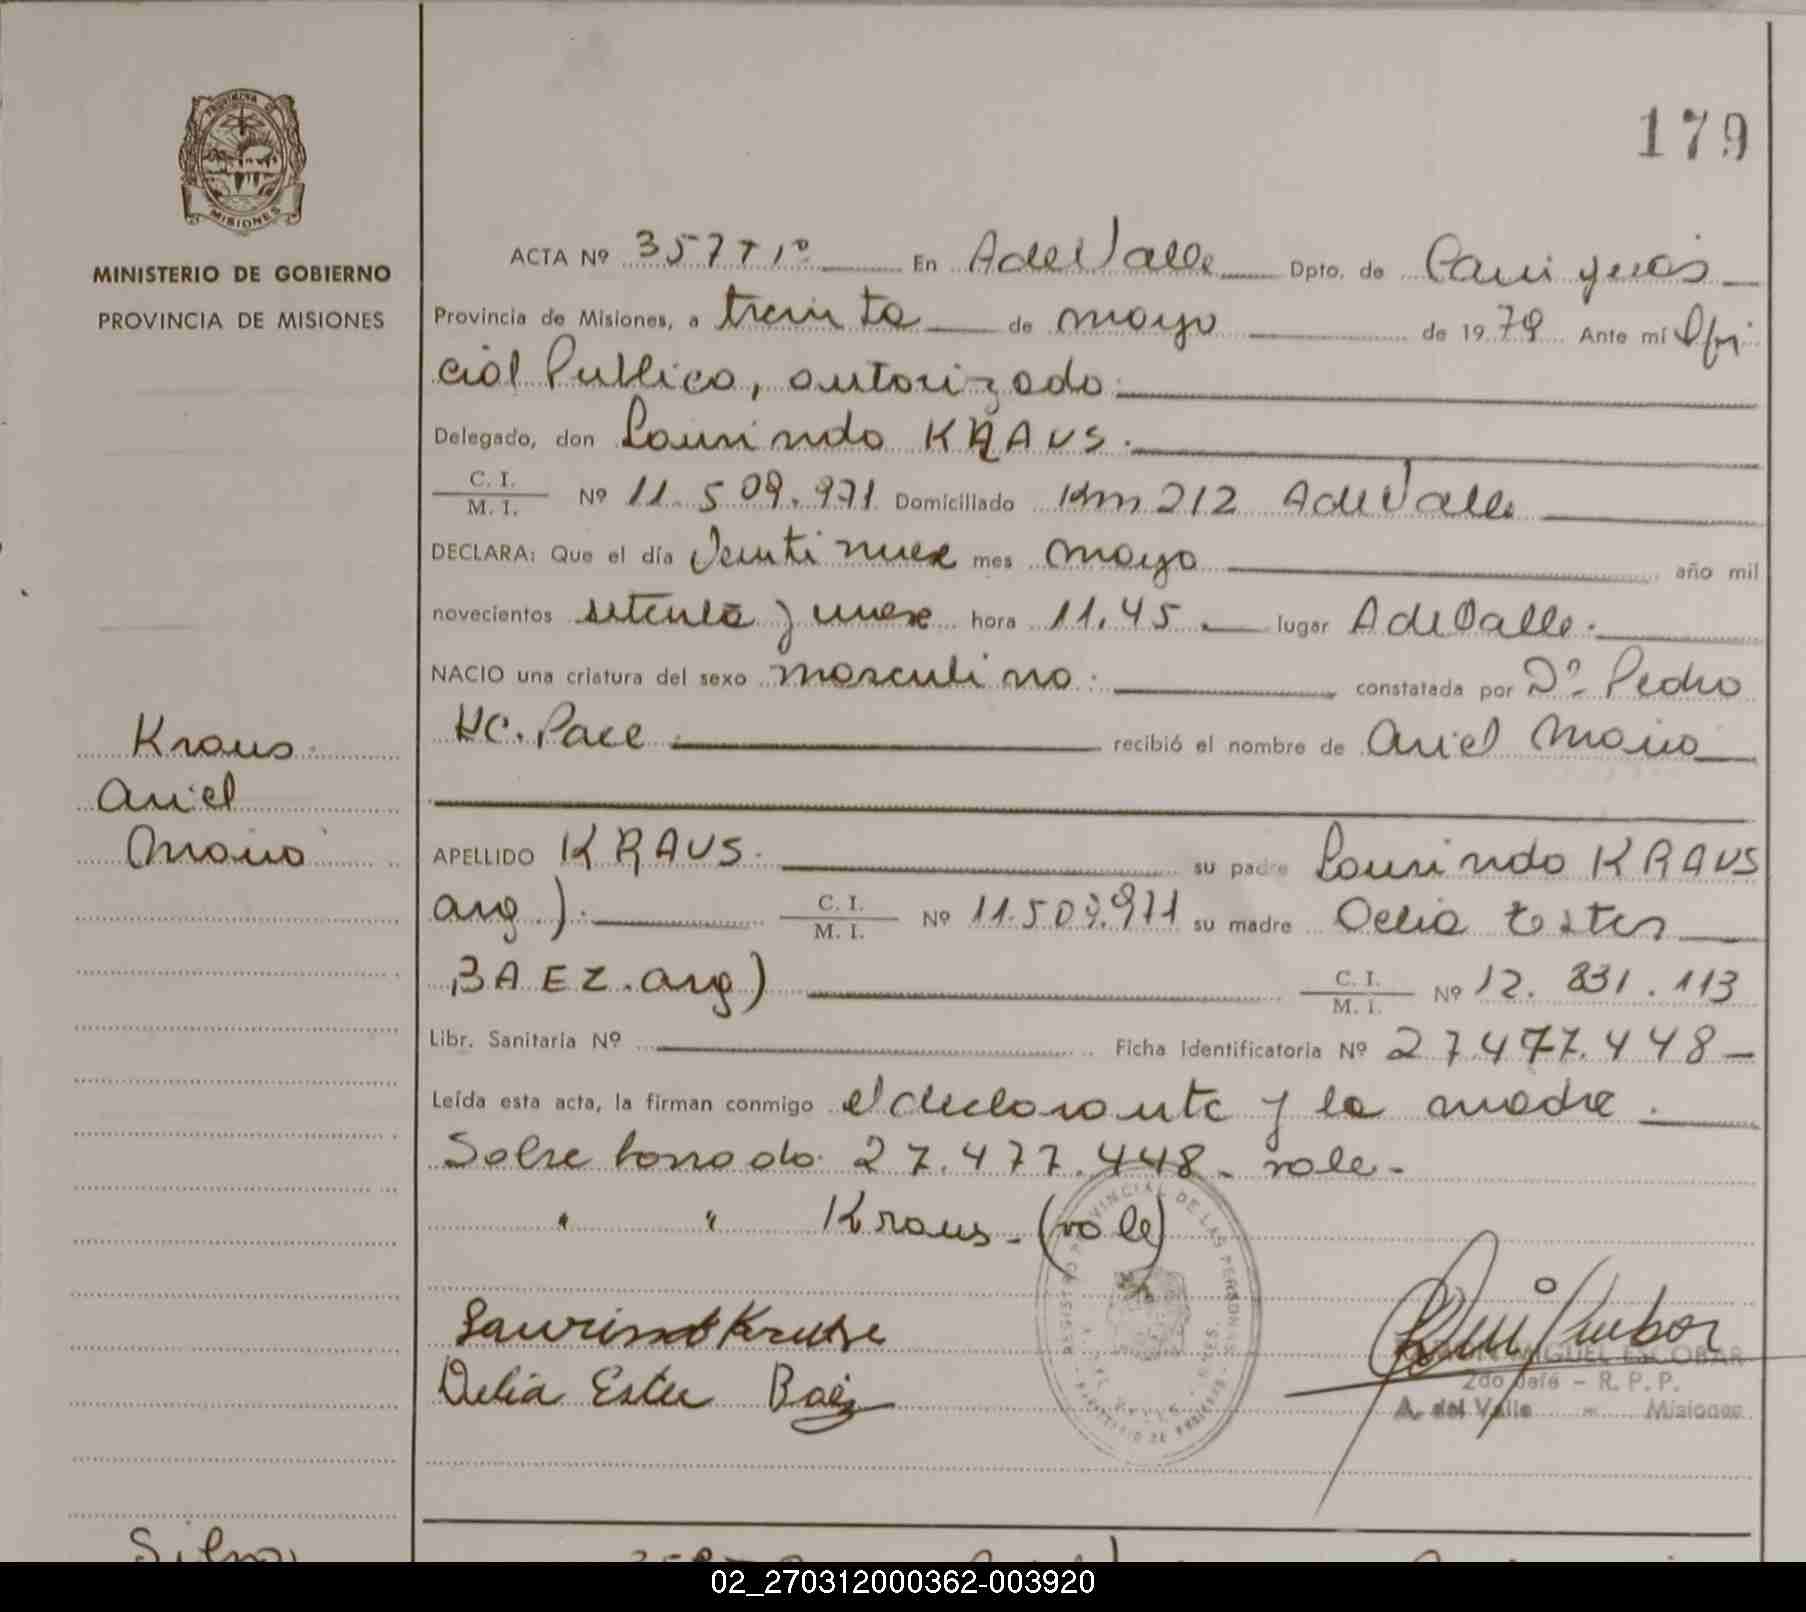 179
PROVINCIA DE
MISIONES
MINISTERIO DE GOBIERNO
PROVINCIA DE MISIONES
ACTA Nº 357 T 1º En A del Valle Dpto. de Cainguás
Provincia de Misiones, a treinta de mayo de 1979 Ante mí Ofi
cial Publico, autorizado
Delegado, don Laurindo KRAUS.
C. I.
M. I. Nº 11.509.971 Domiciliado Km 212 A del Valle
DECLARA: Que el día Veintinueve mes mayo año mil
novecientos setenta y nueve hora 11.45 lugar A del Valle.
NACIO una criatura del sexo masculino. constatada por Dr. Pedro
HC. Pace recibió el nombre de Ariel Mario
Kraus
Ariel
Mario
APELLIDO KRAUS. su padre Laurindo KRAUS
arg). C. I.
M. I. Nº 11.509.971 su madre Delia Ester
BAEZ. arg) C. I.
M. I. Nº 12.831.113
Libr. Sanitaria Nº Ficha Identificatoria Nº 27.477.448-
Leída esta acta, la firman conmigo el declarante y la madre.
Sobre borrado. 27.477.448- vale-
" " Kraus- (vale)
REGISTRO PROVINCIAL DE LAS PERSONAS
Laurindo Kruse
Delia Ester Baéz
MIGUEL ESCOBAR
2do Jefe - R. P. P.
A. del Valle - Misiones
Silva
02_270312000362-003920